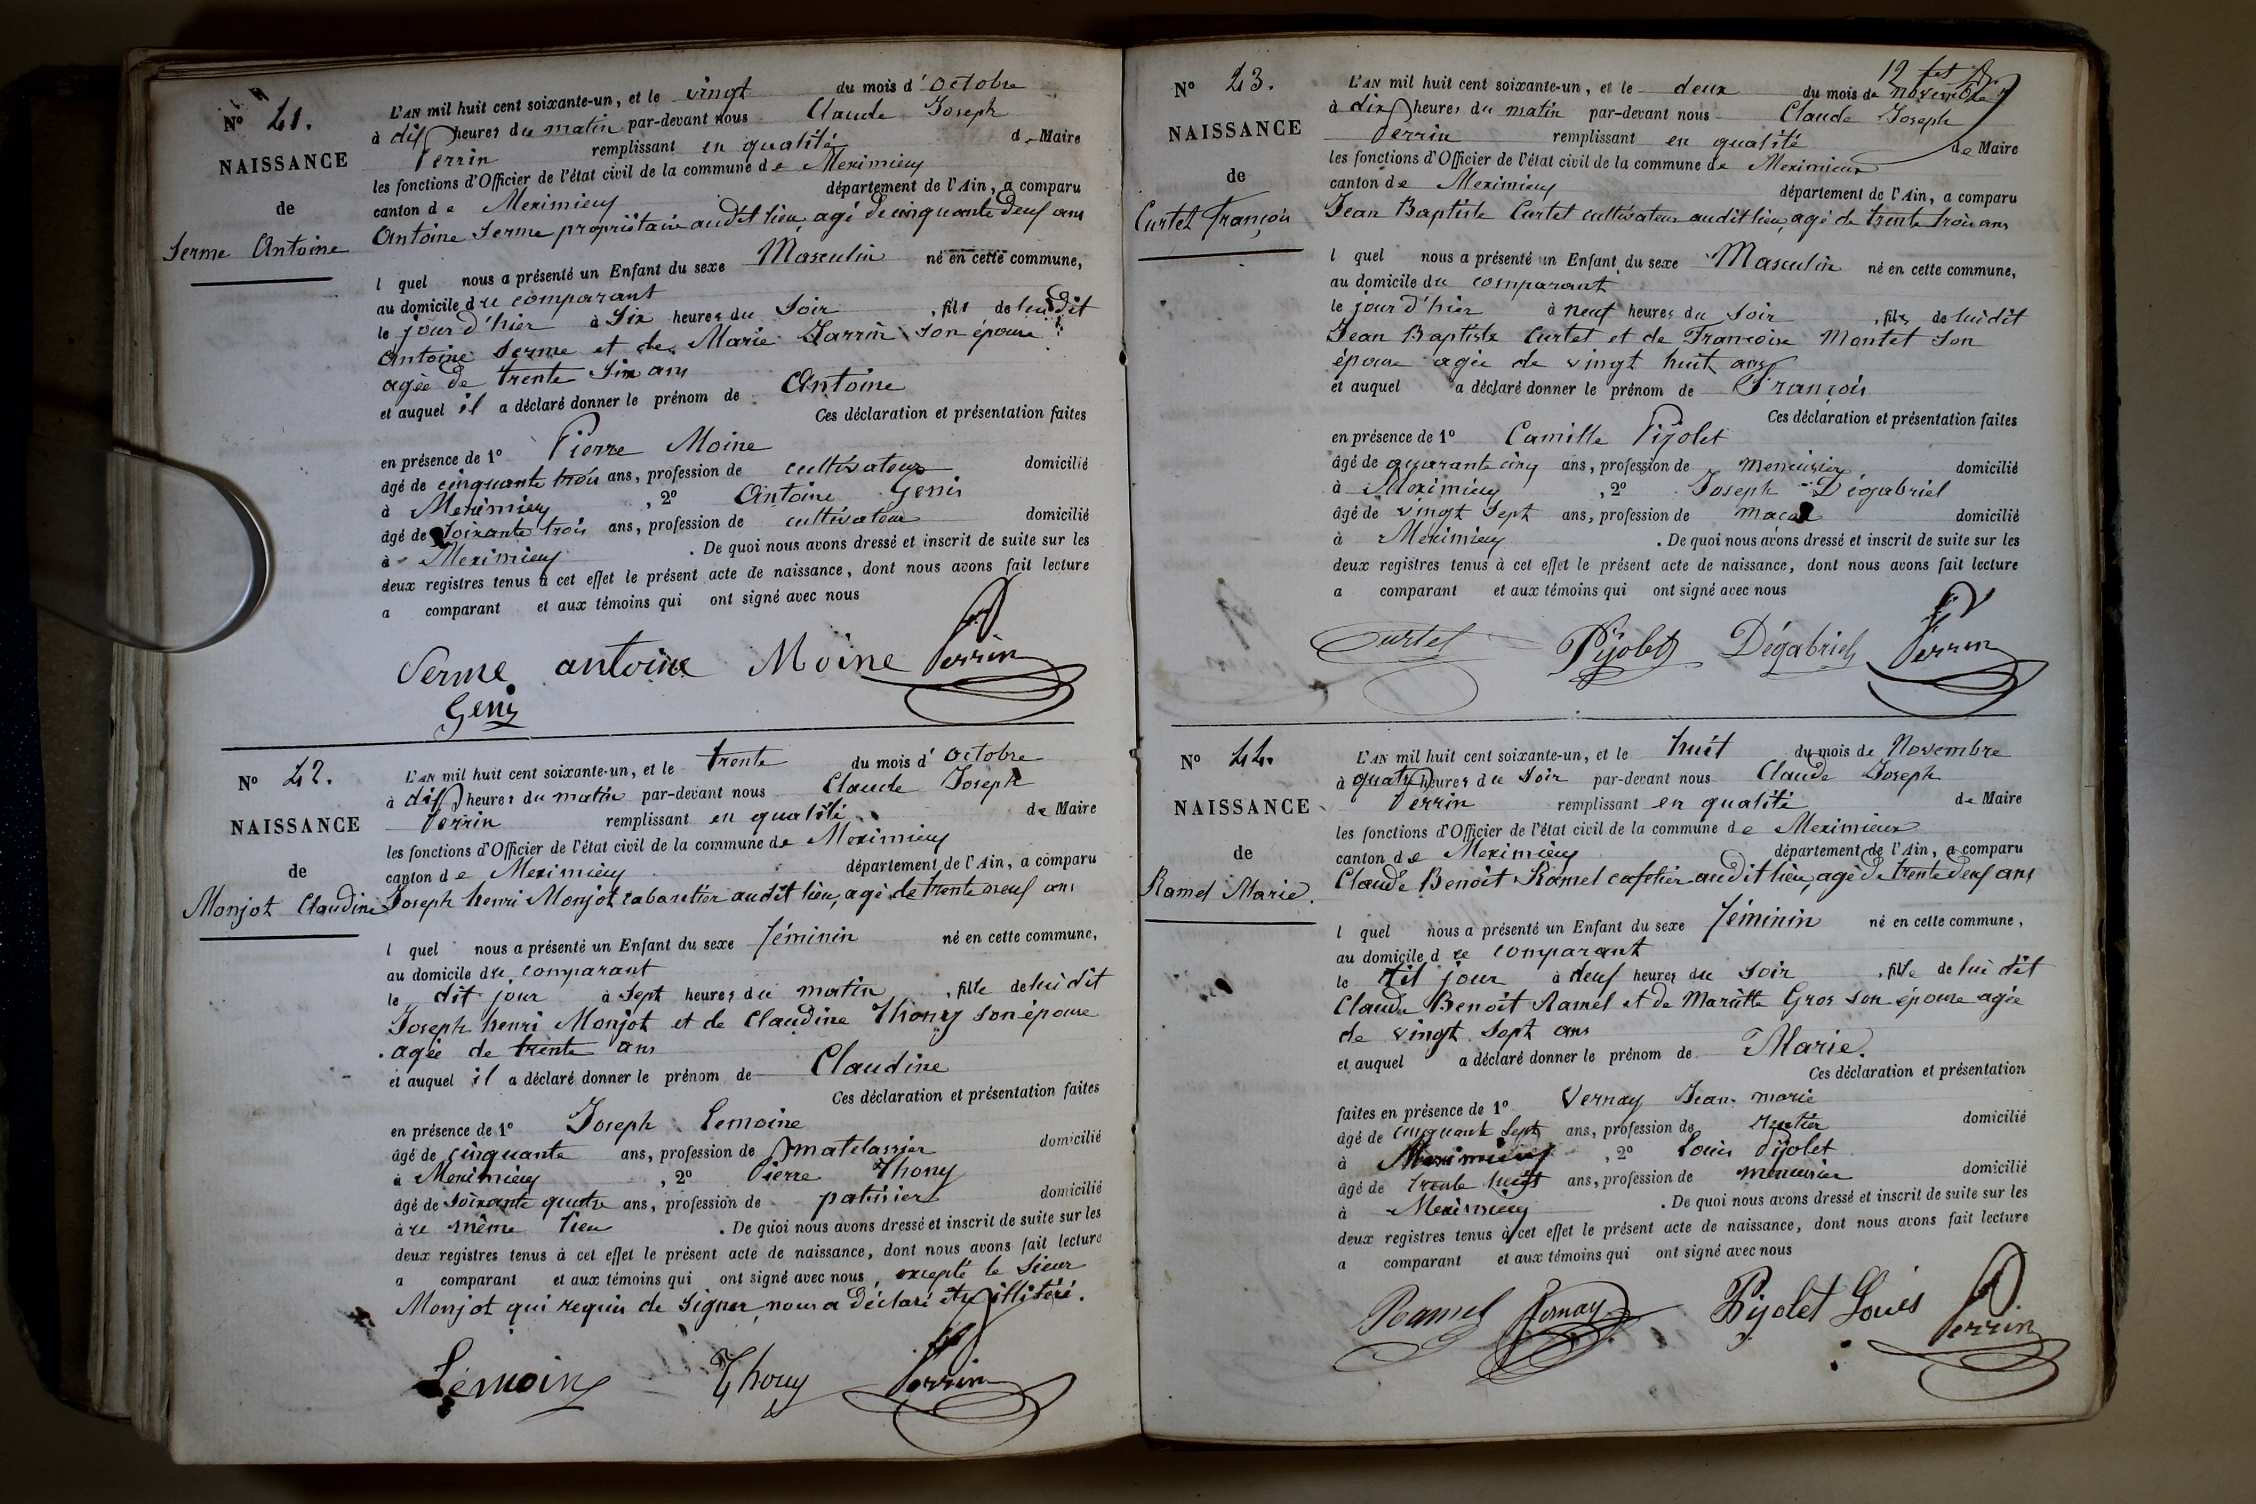 N° 41.
NAISSANCE
de
Serme Antoine
L'AN mil huit cent soixante-un, et le vingt du mois d'octobre
à dix heures du matin par-devant nous Claude Joseph
Perrin remplissant en qualité de Maire
les fonctions d'Officier de l'état civil de la commune de Meximieux
canton de Meximieux département de l'Ain, a comparu
Antoine Serme propriétaire audit lieu, agé de cinquante deux ans
l quel nous a présenté un Enfant du sexe Masculin né en cette commune,
au domicile du comparant
le jour d'hier à Six heures du Soir, fils de lui dit
Antoine Serme et de Marie Jarrin son épouse
agée de trente Six ans
et auquel il a déclaré donner le prénom de Antoine
Ces déclaration et présentation faites
en présence de 1° Pierre Moine
âgé de cinquante trois ans, profession de cultivateur domicilié
à Meximieux, 2° Antoine Genis
âgé de Soixante trois ans, profession de cultivateur domicilié
à Meximieux. De quoi nous avons dressé et inscrit de suite sur les
deux registres tenus à cet effet le présent acte de naissance, dont nous avons fait lecture
a comparant et aux témoins qui ont signé avec nous
Serme antoine Moine Perrin
Genis
N° 42.
NAISSANCE
de
Monjot Claudine
L'AN mil huit cent soixante-un, et le trente du mois d'octobre
à dix heures du matin par-devant nous Claude Joseph
Perrin remplissant en qualité de Maire
les fonctions d'Officier de l'état civil de la commune de Meximieux
canton de Meximieux département de l'Ain, a comparu
Joseph henri Monjot cabaretier audit lieu, agé de trente neuf ans
l quel nous a présenté un Enfant du sexe féminin né en cette commune,
au domicile du comparant
le dit jour à Sept heures du matin, fille de lui dit
Joseph henri Monjot et de Claudine Thony son épouse
agée de trente ans
et auquel il a déclaré donner le prénom de Claudine
Ces déclaration et présentation faites
en présence de 1° Joseph Lemoine
âgé de cinquante ans, profession de matelassier domicilié
à Meximieux, 2° Pierre Thony
âgé de Soixante quatre ans, profession de patissier domicilié
à ce même lieu. De quoi nous avons dressé et inscrit de suite sur les
deux registres tenus à cet effet le présent acte de naissance, dont nous avons fait lecture
a comparant et aux témoins qui ont signé avec nous, excepté le Sieur
Monjot qui requis de Signer, nous a déclaré être illitéré.
Lémoine Thony Perrin
12
N° 43.
NAISSANCE
de
Curtet François
L'AN mil huit cent soixante-un, et le deux du mois de Novembre
à dix heures du matin par-devant nous Claude Joseph
Perrin remplissant en qualité de Maire
les fonctions d'Officier de l'état civil de la commune de Meximieux
canton de Meximieux département de l'Ain, a comparu
Jean Baptiste Curtet cultivateur audit lieu, agé de trente trois ans
l quel nous a présenté un Enfant du sexe Masculin né en cette commune,
au domicile du comparant
le jour d'hier à neuf heures du Soir, fils de lui dit
Jean Baptiste Curtet et de Françoise Montet Son
épouse agée de vingt huit ans
et auquel a déclaré donner le prénom de François
Ces déclaration et présentation faites
en présence de 1° Camille Pijolet
âgé de quarante cinq ans, profession de menuisier domicilié
à Meximieux, 2° Joseph Dégabriel
âgé de vingt Sept ans, profession de maçon domicilié
à Meximieux. De quoi nous avons dressé et inscrit de suite sur les
deux registres tenus à cet effet le présent acte de naissance, dont nous avons fait lecture
a comparant et aux témoins qui ont signé avec nous
Curtet Pijolet Dégabriel Perrin
N° 44.
NAISSANCE
de
Ramel Marie.
L'AN mil huit cent soixante-un, et le huit du mois de Novembre
à quatre heures du Soir par-devant nous Claude Joseph
Perrin remplissant en qualité de Maire
les fonctions d'Officier de l'état civil de la commune de Meximieux
canton de Meximieux département de l'Ain, a comparu
Claude Benoît Ramel cafetier audit lieu, agé de trente deux ans
l quel nous a présenté un Enfant du sexe féminin né en cette commune,
au domicile du comparant
le dit jour à deux heures du Soir, fille de lui dit
Claude Benoît Ramel et de Mariette Gros son épouse agée
de vingt Sept ans
et auquel a déclaré donner le prénom de Marie.
Ces déclaration et présentation
faites en présence de 1° Vernay Jean marie
âgé de cinquante Sept ans, profession de rentier domicilié
à Meximieux, 2° Louis Pijolet
âgé de trente huit ans, profession de menuisier domicilié
à Meximieux. De quoi nous avons dressé et inscrit de suite sur les
deux registres tenus à cet effet le présent acte de naissance, dont nous avons fait lecture
a comparant et aux témoins qui ont signé avec nous
Ramel Vernay Pijolet Louis Perrin